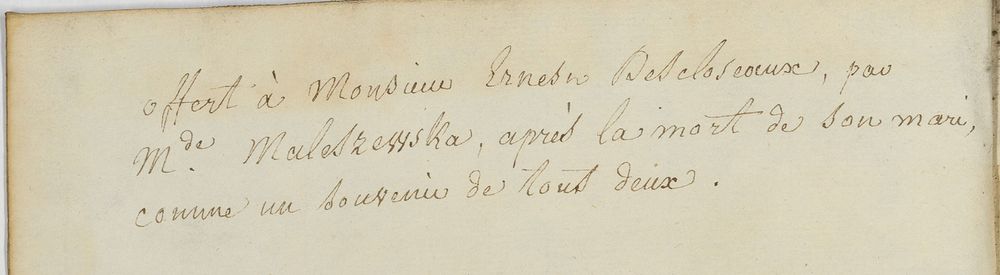 offert à Monsieur Ernest Descloseaux, par
M.de Maleszewska, après la mort de son mari,
comme un souvenir de tous deux.